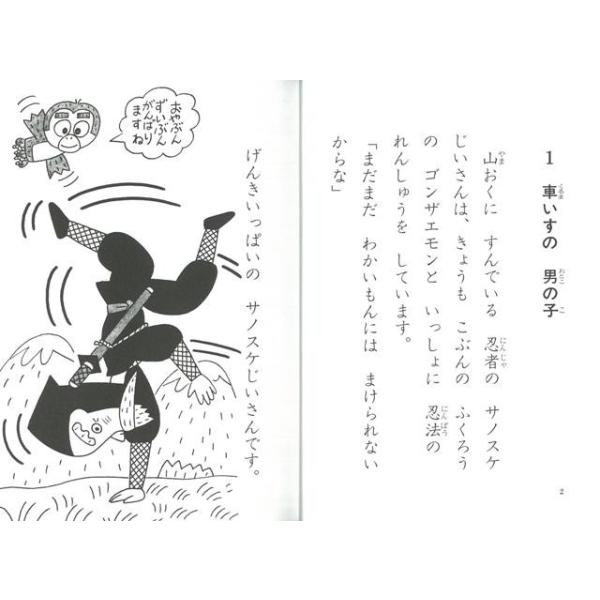 1 車いすの 男の子
山おくに すんでいる 忍者の サノスケ
じいさんは、きょうも こぶんの ふくろう
の ゴンザエモンと いっしょに 忍法の
れんしゅうを しています。
「まだまだ わかいもんには まけられない
からな」
2
げんきいっぱいの サノスケじいさんです。
おやぶん
ずいぶん
がんばり
ますね